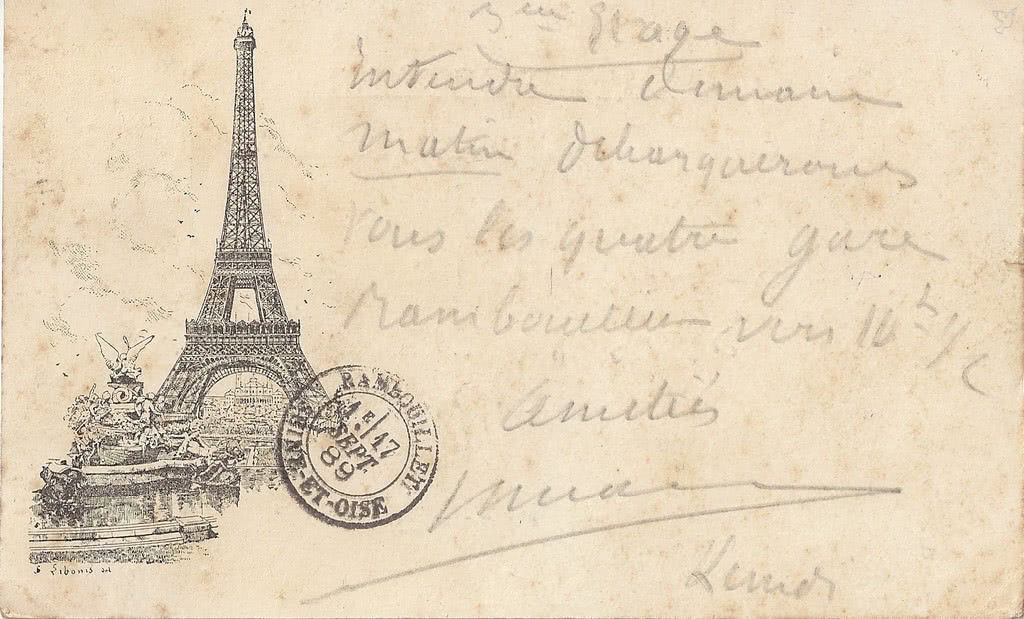 3eme Etage
matin debarquerons
tous les quatre gare
Rambouillet vers 10h
Amitiés
Lundi
RAMBOUILLET
1E/17
SEPT
89
SEINE-ET-OISE
Libonis del